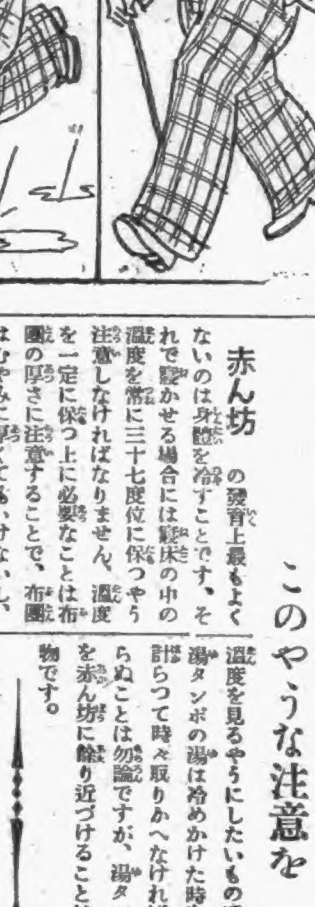 このやうな注意を
赤ん坊の發育上最もよく
ないのは身體を冷すことです、そ
れで寢かせる場合には寢床の中の
溫度を常に三十七度位に保つやう
注意しなければなりません、溫度
を一定に保つ上に必要なことは布
團の厚さに注意することで、布團
はむやみに厚くてもいけないし、
溫度を見るやうにしたいもの
湯タンポの湯は冷めかけた時
計らつて時々取りかへなけれ
らぬことは勿論ですが、湯タ
を赤ん坊に餘り近づけること
物です。